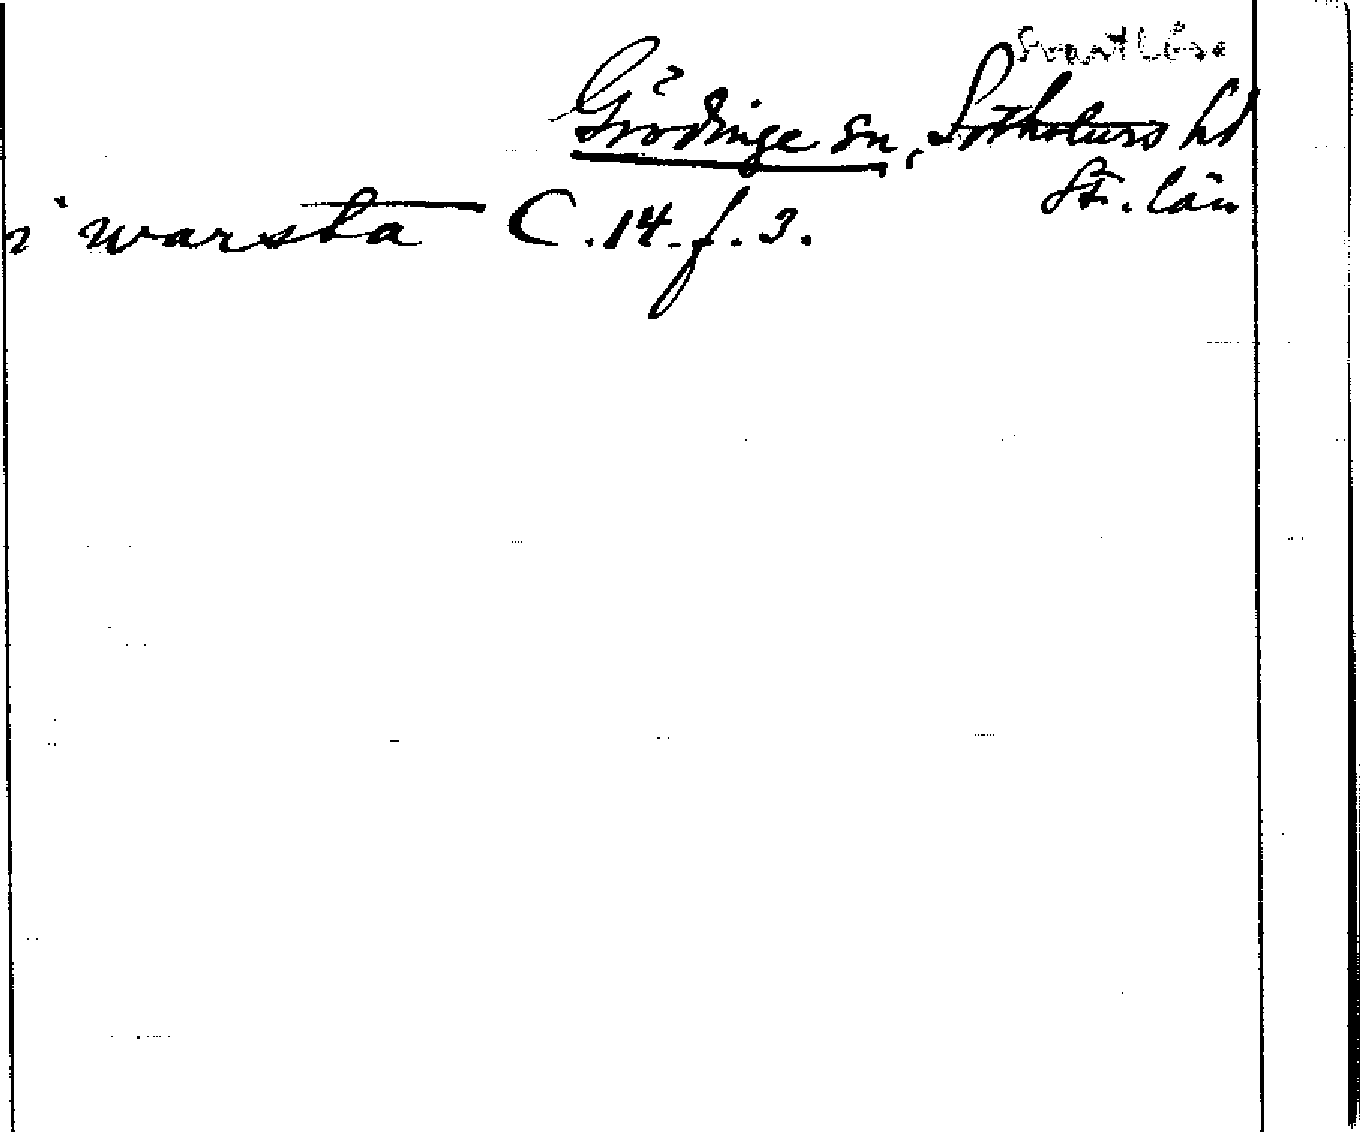 Svartlösa
Grödinge sn, Sotholms hd
St. län
i warsta C. 14. f. 3.